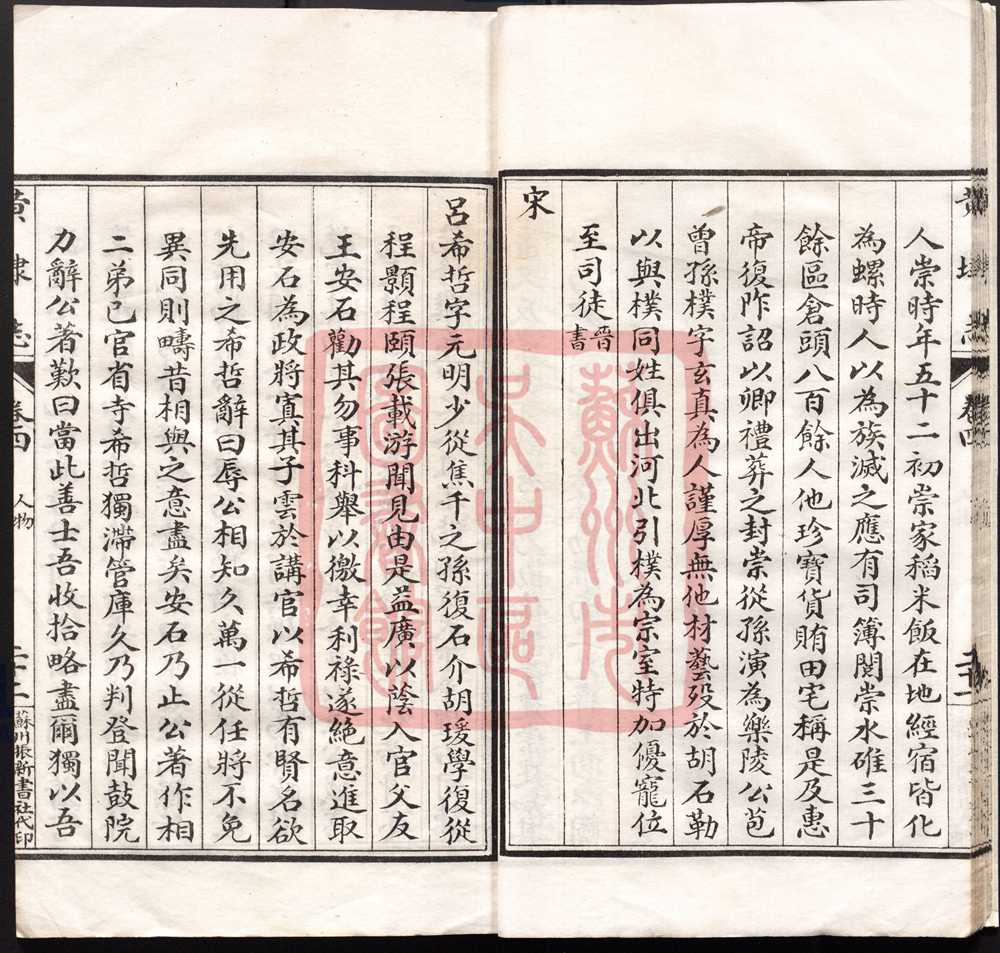 人崇時年五十二初崇家稻米飯在地經宿皆化
為螺時人以為族滅之應有司簿閱崇水碓三十
餘區倉頭八百餘人他珍寶貨賄田宅稱是及惠
帝復阼詔以卿禮葬之封崇從孫演為樂陵公苞
曾孫樸字玄真為人謹厚無他材藝歿於胡石勒
以與樸同姓俱出河北引樸為宗室特加優寵位
至司徒晉書
宋
呂希哲字元明少從焦千之孫復石介胡瑗學復從
程顥程頤張載游聞見由是益廣以蔭入官父友
王安石勸其勿事科舉以徼幸利祿遂絕意進取
安石為政將寘其子雲於講官以希哲有賢名欲
先用之希哲辭曰辱公相知久萬一從任將不免
異同則疇昔相與之意盡矣安石乃止公著作相
二弟已官省寺希哲獨滯管庫久乃判登聞鼓院
力辭公著歎曰當此善士吾收拾略盡爾獨以吾
黃埭志 卷四 人物 二十一 蘇州振新書社代印
蘇州市
吳中區
圖書館